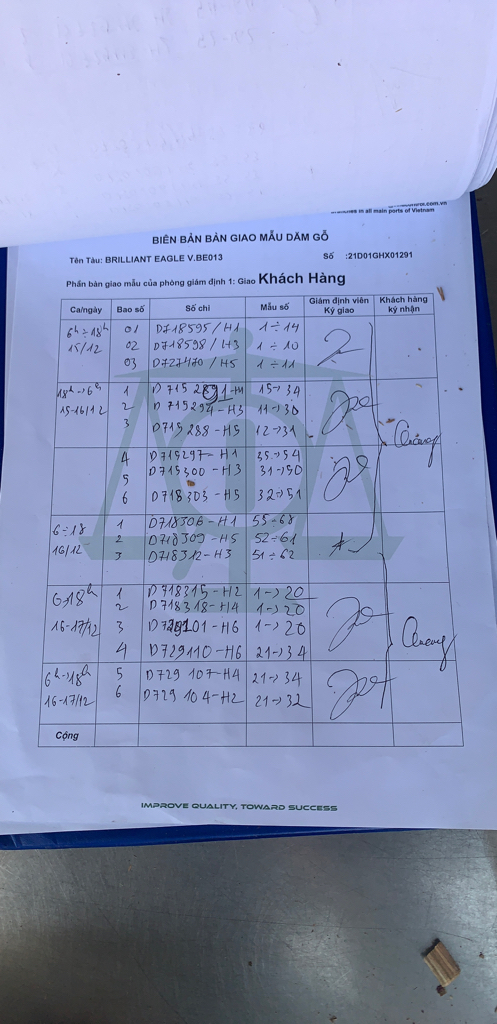 branches in all main ports of Vietnam
BIÊN BẢN BÀN GIAO MẪU DĂM GỖ
Tên Tàu: BRILLIANT EAGLE V.BE013 Số :21D01GHX01291
Phần bàn giao mẫu của phòng giám định 1: Giao Khách Hàng
Ca/ngày Bao số Số chì Mẫu số Giám định viên Ký giao Khách hàng ký nhận
6h ÷ 18h 01 D718595/H1 1 ÷ 14
15/12 02 D718598/H3 1 ÷ 10
03 D727470/H5 1 ÷ 11
18h -> 6h 1 D715291-H1 15 -> 34
15-16/12 2 D715294-H3 11 -> 30
3 D715288-H5 12 -> 31
4 D715297-H1 35 -> 54
5 D715300-H3 31 -> 50
6 D718303-H5 32 -> 51
Quang
6 ÷ 18 1 D718306-H1 55-68
16/12 2 D718309-H5 52 ÷ 61
3 D718312-H3 51 ÷ 62
1 D718315-H2 1 -> 20
16-17/12 2 D718318-H4 1 -> 20
3 1 -> 20
4 D729110-H6 21 -> 34
Quang
6h -> 18h 5 D729 107-H4 21 -> 34
16-17/12 6 D729 104-H2 21 -> 32
Cộng
IMPROVE QUALITY, TOWARD SUCCESS